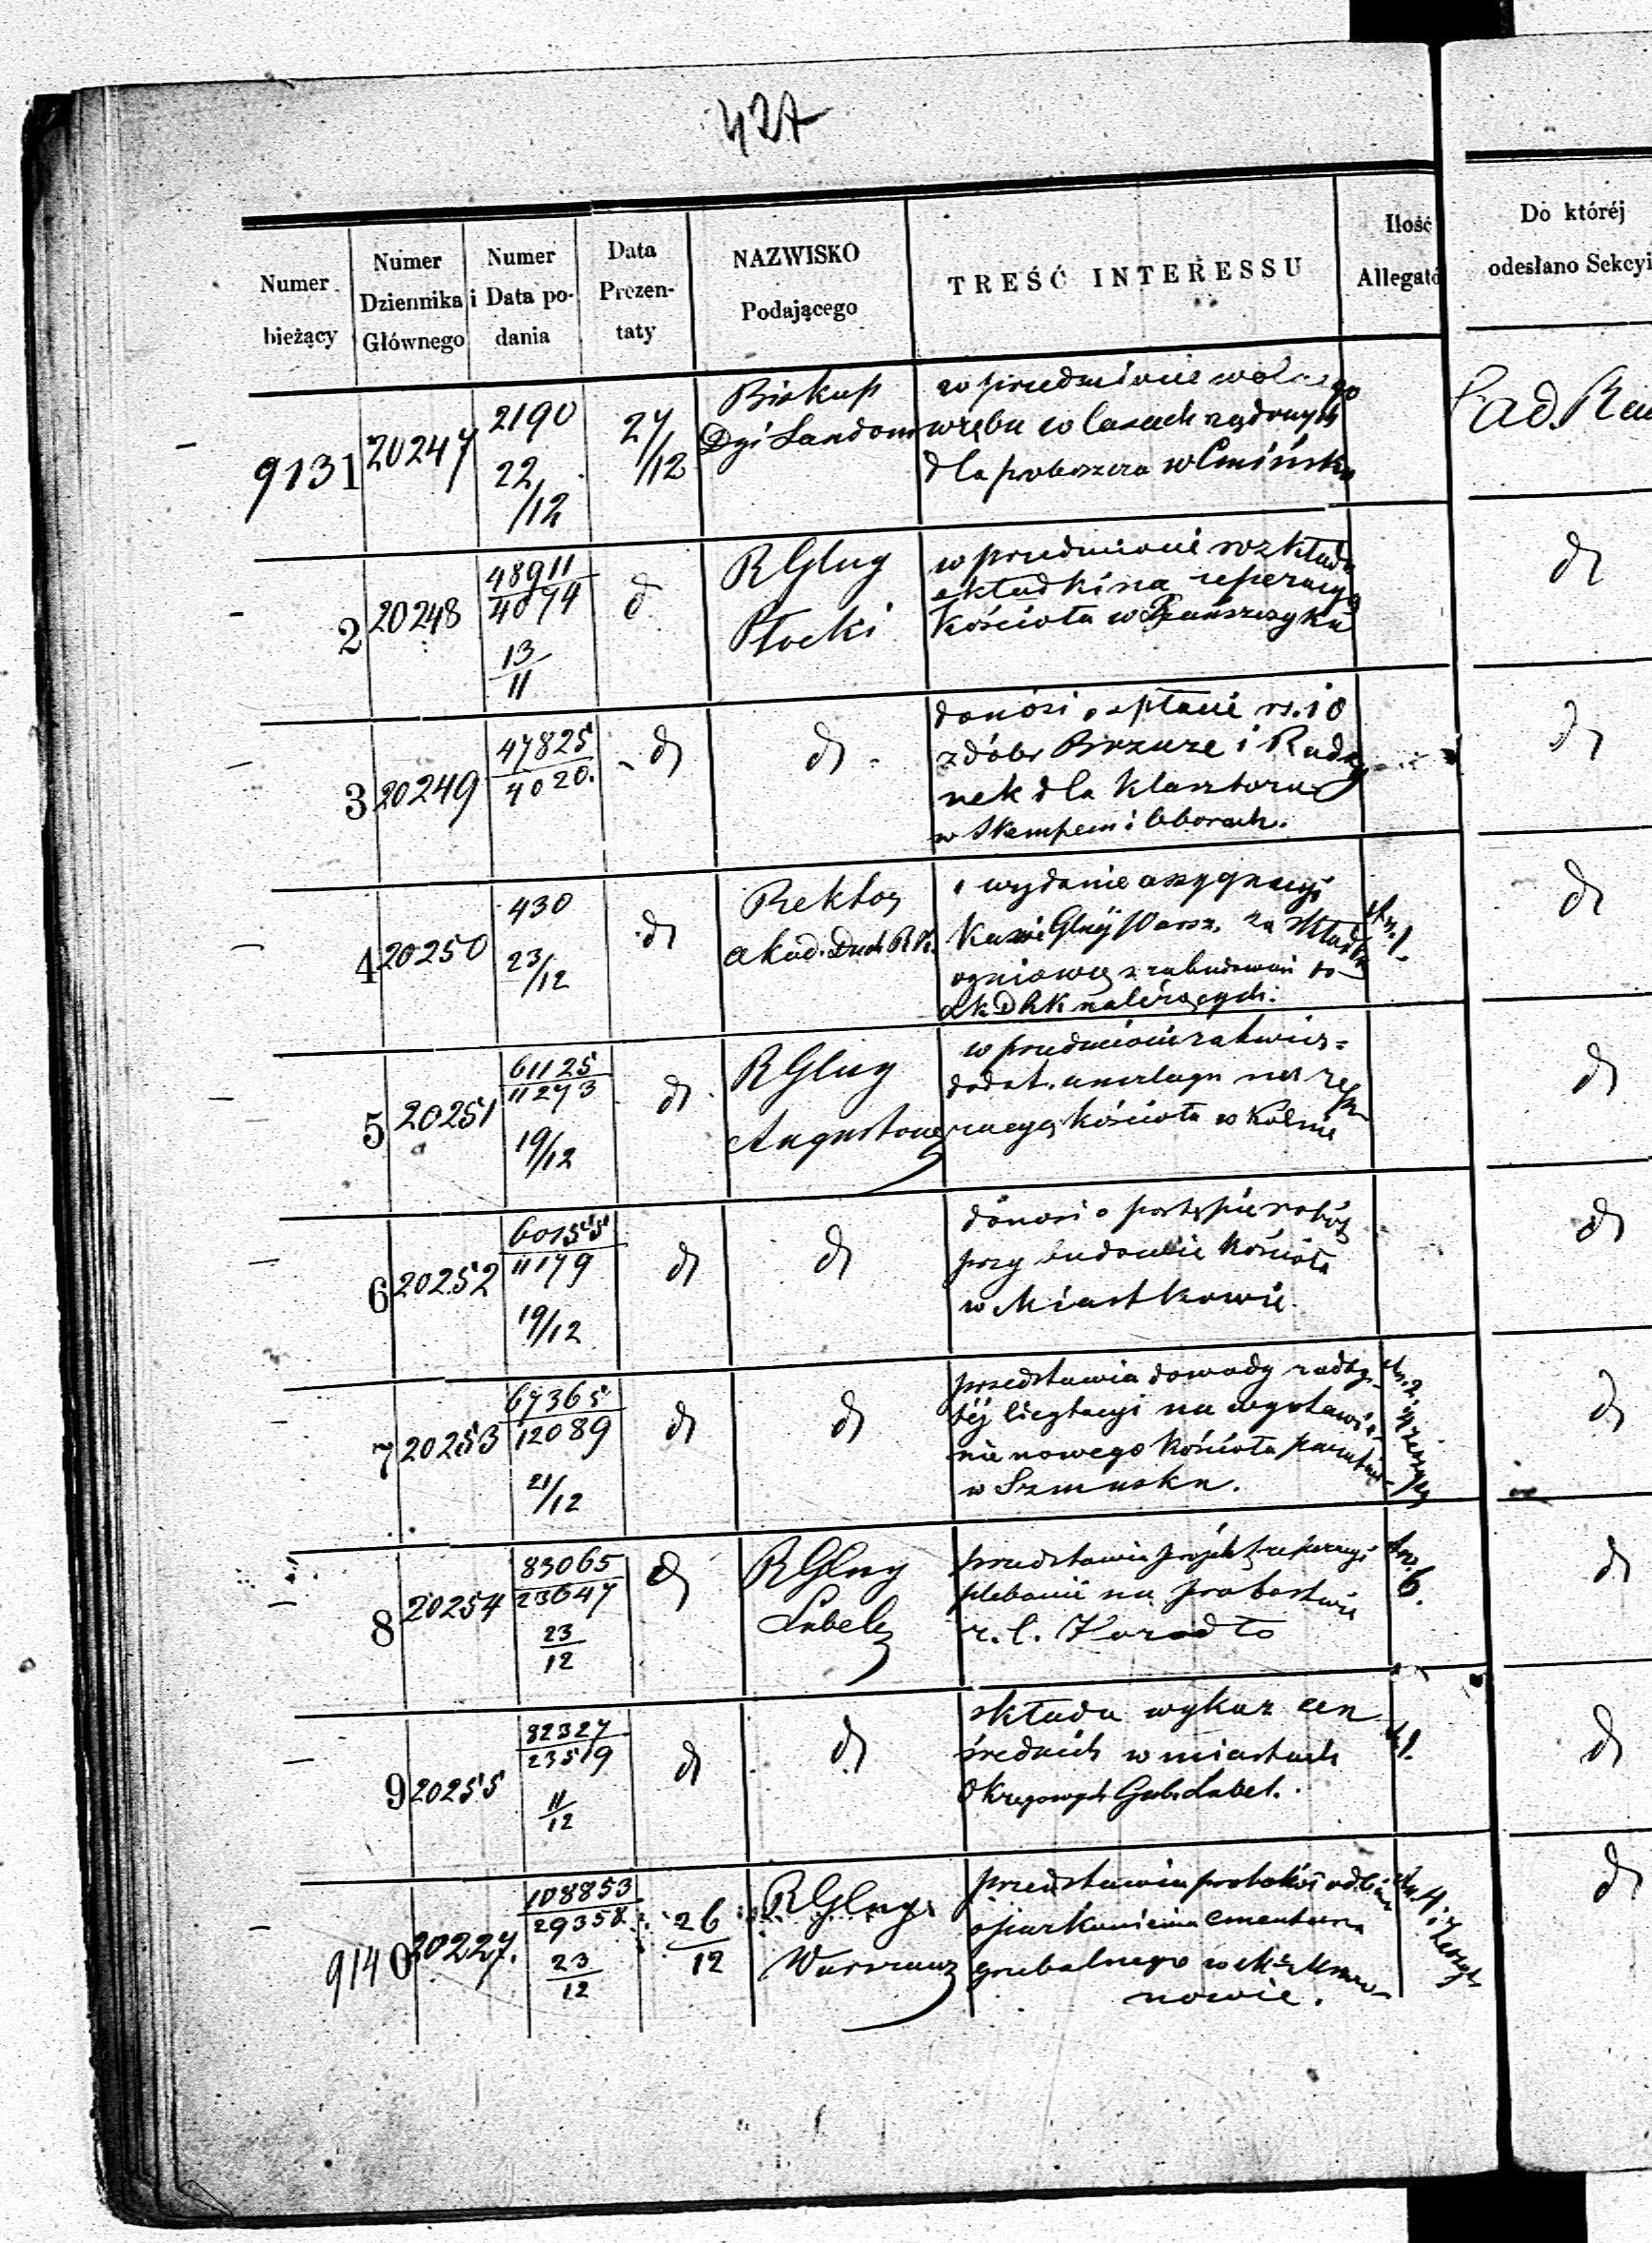 427
Numer bieżący
Numer Dziennika Głównego
Numer i Data podania
Data Prezentaty
NAZWISKO Podającego
TREŚĆ INTERESSU
Ilość Allegató
Do któréj odesłano Sekcyi
9131 20247 2190 22/12 27/12
Biskup
Dyi Sandom
w przedmiocie wolnego
wrębu w lasach rządowych
dla proboszcza w Cmińsku
2 20248 48911/4074 13/11 d
RGlny
Płocki
w przedmiocie rozkładu
składki na reperacyą
Kościoła w
d
3 20249 47825/4020. d d
donosi o spłacie rs. 10
z dóbr Brzuze i
nek dla Klasztoru
w Skempem i Oborach.
d
4 20250 430 23/12 d
Rektor
Akad. Duch RK.
o wydanie assygnacyi
Kassie Głnéj Warsz. za składkę
ogniową z zabudowań do
Ak D RK należących.
d
5 20251 61125/11273 19/12 d
RGlny
Augustows
w przedmiocie zatwier=
dodat. anszlagu na rep
racyą Kościoła w Kolnie
d
6 20252 60155/11179 19/12 d d
donosi o postępie robót
przy budowie Kościoła
w Miastkowie.
d
7 20253 67365/12089 21/12 d d
przedstawia dowody z odby-
téj licytacyi na wystawie-
nie nowego Kościoła
w
d
8 20254 83065/23647 23/12 d
RGlny
Lubels
przedstawia projekt reperacyi
plebanii na probostwie
r. l.
6.
d
9 20255 82327/23519 11/12 d d
składa wykaz cen
średnich w miastach
Okręgowych Gub. Lubel.
1.
d
9140 20227. 108853/29358 23/12 26/12
RGlny
Warszaws
przedstawia protokół odbioru
oparkanienia cmentarza
grzebalnego w Mszczo-
nowie.
d